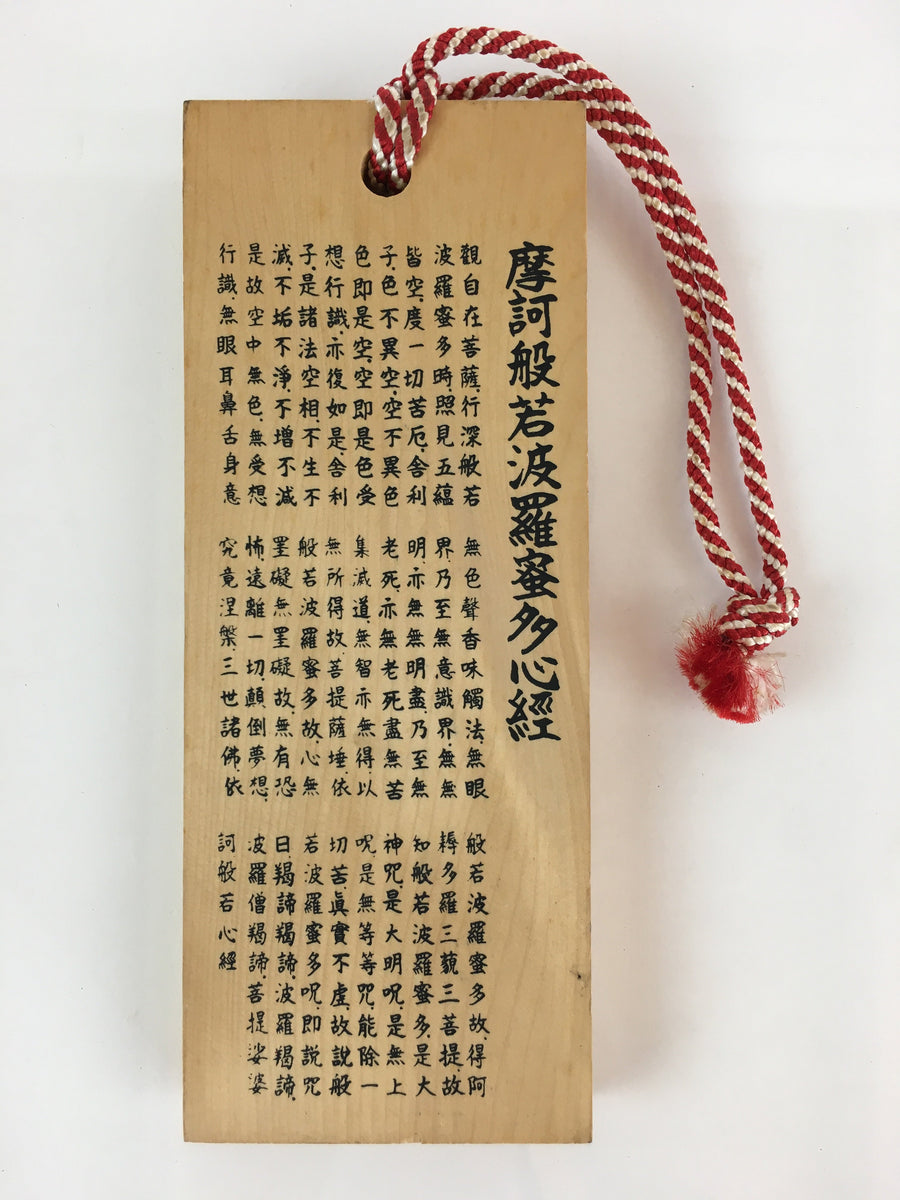 摩訶般若波羅蜜多心經
觀自在菩薩.行深般若
波羅蜜多時.照見五蘊
皆空.度一切苦厄.舍利
子.色不異空.空不異色
色即是空.空即是色受
想行識.亦復如是.舍利
子.是諸法空相.不生不
滅.不垢不淨.不增不減
是故空中無色.無受想
行識.無眼耳鼻舌身意
無色聲香味觸法.無眼
界.乃至無意識界.無無
明.亦無無明盡.乃至無
老死.亦無老死盡無苦
集滅道.無智亦無得.以
無所得故.菩提薩埵.依
般若波羅蜜多故.心無
罣礙無罣礙故.無有恐
怖.遠離一切顛倒夢想.
究竟涅槃.三世諸佛.依
般若波羅蜜多故.得阿
耨多羅三藐三菩提.故
知般若波羅蜜多.是大
神咒.是大明呪.是無上
呪.是無等等咒.能除一
切苦.眞實不虛.故說般
若波羅蜜多呪.即説咒
曰.羯諦羯諦.波羅羯諦.
波羅僧羯諦.菩提娑婆
訶般若心經